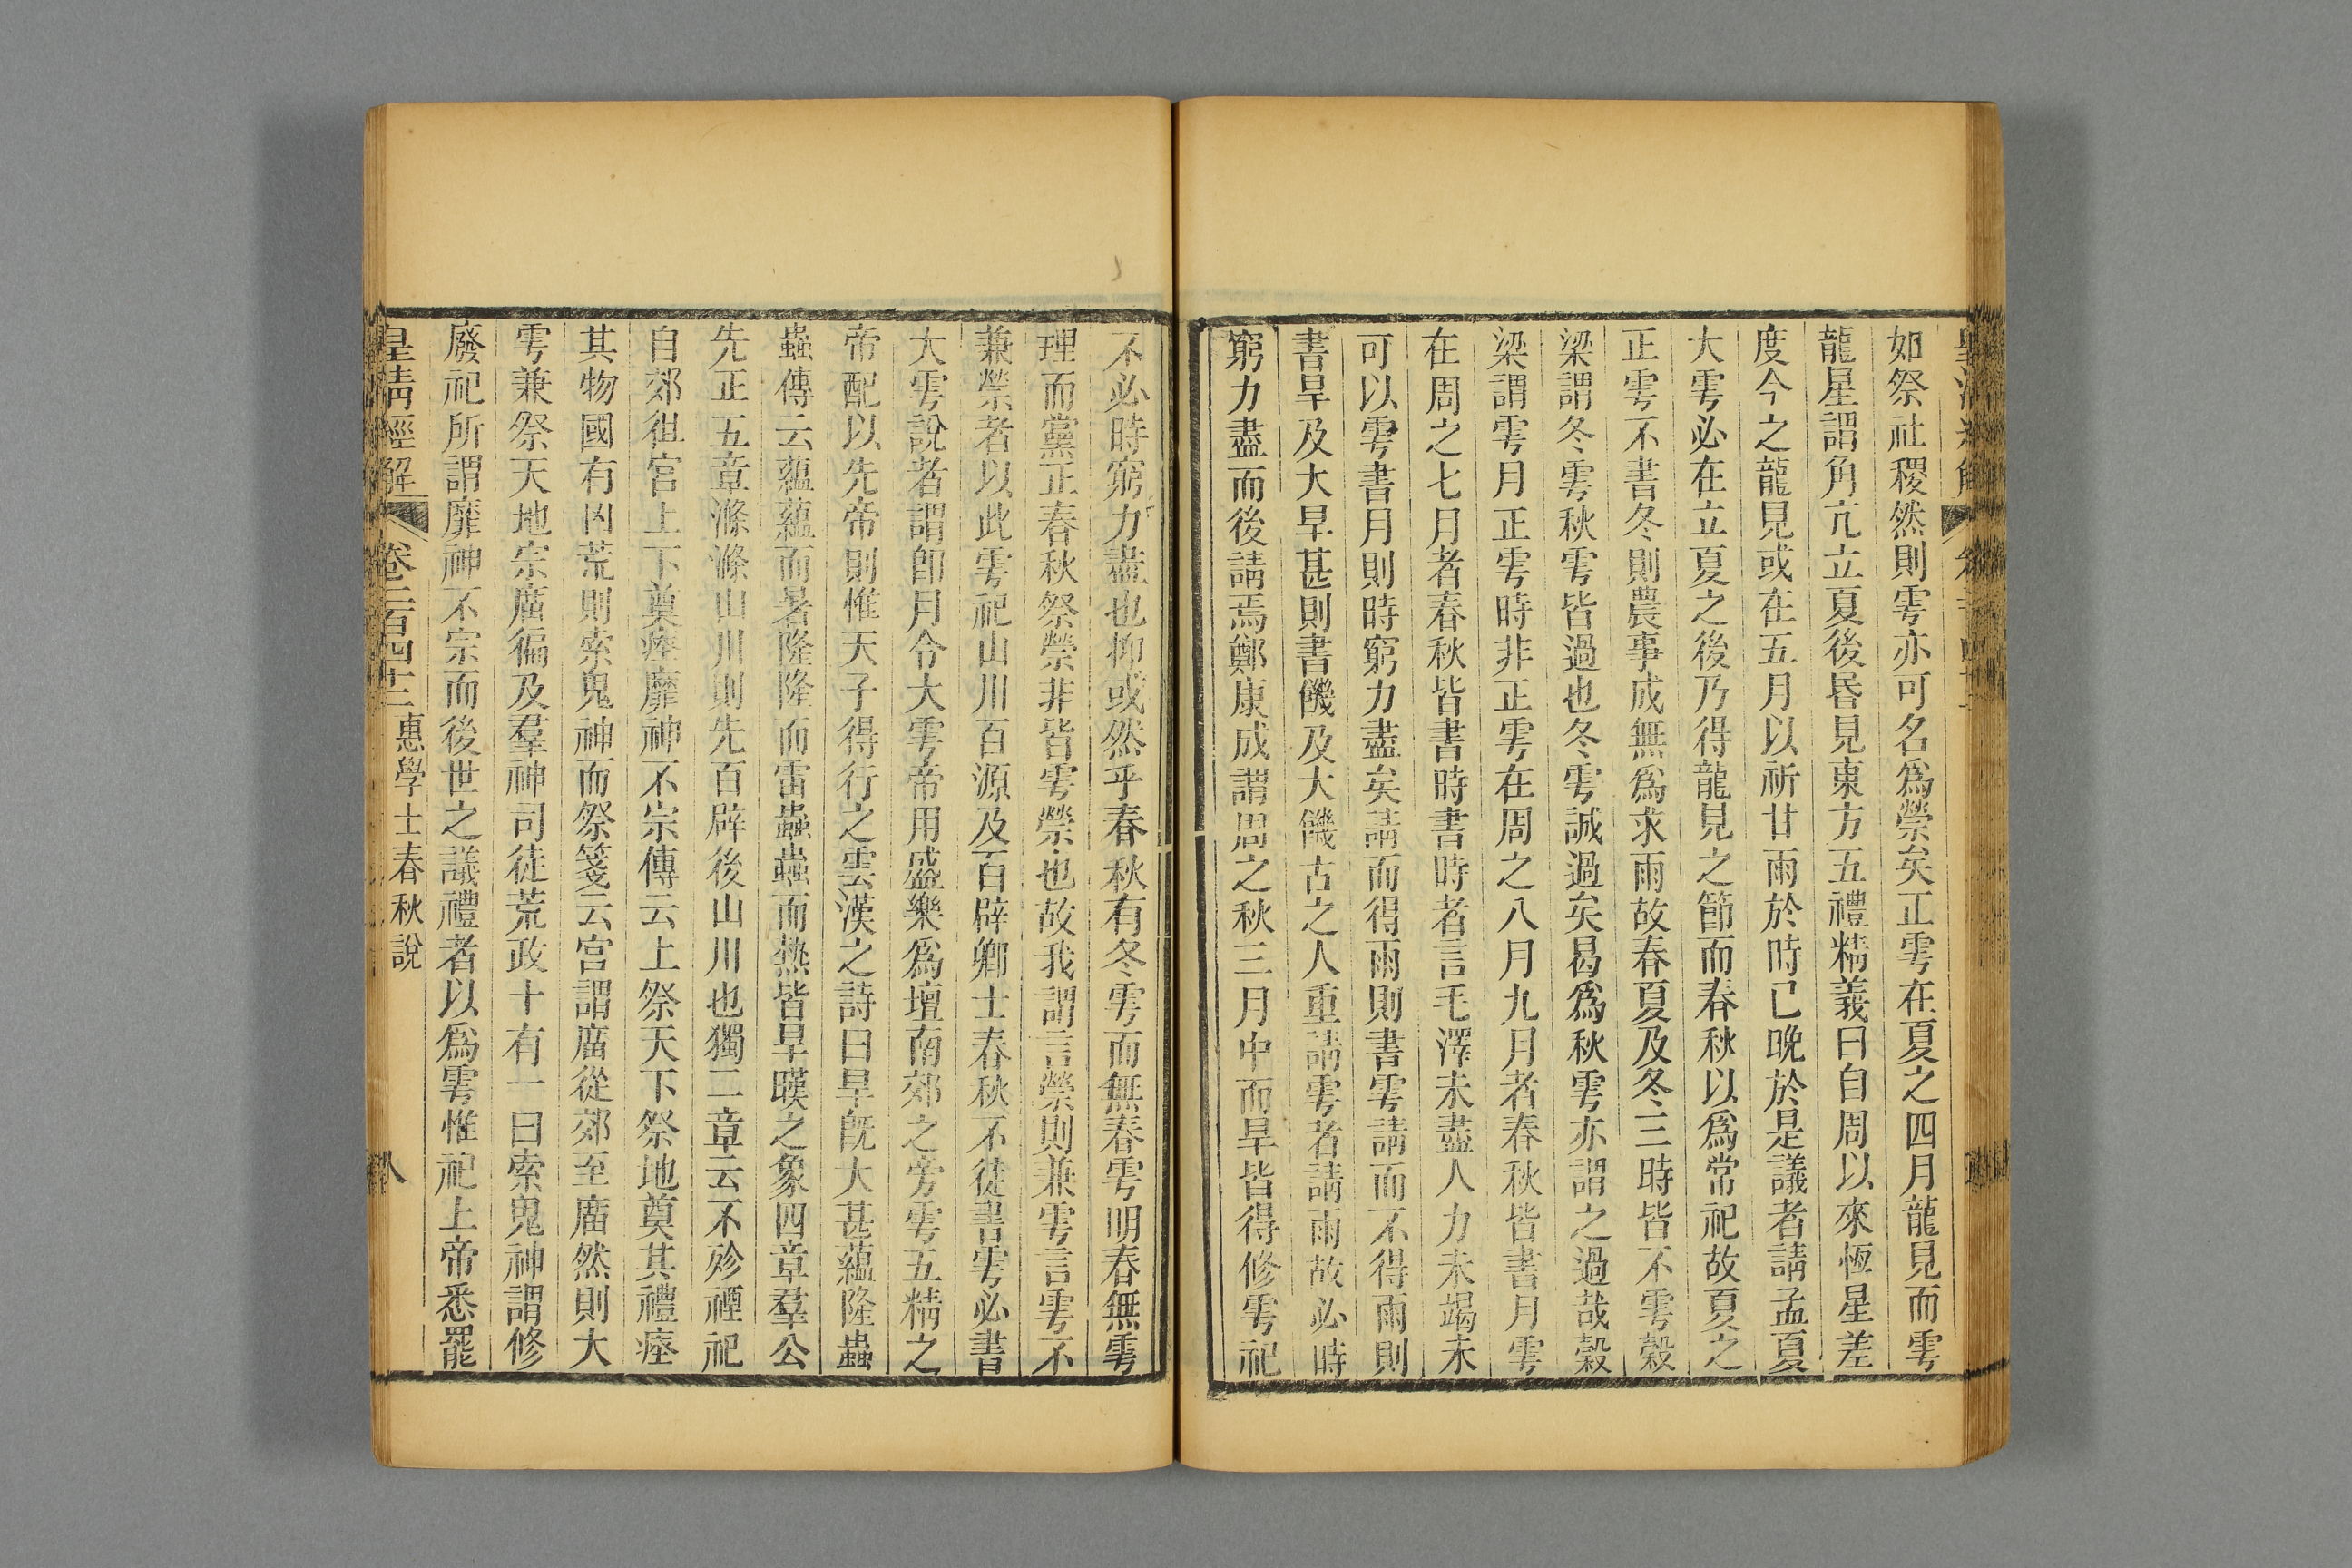 如祭社稷然則雩亦可名爲禜矣正雩在夏之四月龍見而雩
龍星謂角亢立夏後昏見東方五禮精義曰自周以來恆星差
度今之龍見或在五月以祈甘雨於時已晚於是議者請孟夏
大雩必在立夏之後乃得龍見之節而春秋以爲常祀故夏之
正雩不書冬則農事成無爲求雨故春夏及冬三時皆不雩穀
梁謂冬雩秋雩皆過也冬雩誠過矣曷爲秋雩亦謂之過哉穀
梁謂雩月正雩時非正雩在周之八月九月者春秋皆書月雩
在周之七月者春秋皆書時書時者言毛澤未盡人力未竭未
可以雩書月則時窮力盡矣請而得雨則書雩請而不得雨則
書旱及大旱甚則書饑及大饑古之人重請雩者請雨故必時
窮力盡而後請焉鄭康成謂周之秋三月中而旱皆得修雩祀
不必時窮力盡也抑或然乎春秋有冬雩而無春雩明春無雩
理而黨正春秋祭禜非皆雩禜也故我謂言禜則兼雩言雩不
兼禜者以此雩祀山川百源及百辟卿士春秋不徒書雩必書
大雩說者謂卽月令大雩帝用盛樂爲壇南郊之旁雩五精之
帝配以先帝則惟天子得行之雲漢之詩曰旱旣大甚蘊隆蟲
蟲傳云蘊蘊而暑隆隆而雷蟲蟲而熱皆旱暵之象四章羣公
先正五章滌滌山川則先百辟後山川也獨二章云不殄禋祀
自郊徂宮上下奠瘞靡神不宗傳云上祭天下祭地奠其禮瘞
其物國有凶荒則索鬼神而祭箋云宮謂廟從郊至廟然則大
雩兼祭天地宗廟徧及羣神司徒荒政十有一曰索鬼神謂修
廢祀所謂靡神不宗而後世之議禮者以爲雩惟祀上帝悉罷
皇清經解 卷二百四十三 惠學士春秋說 八